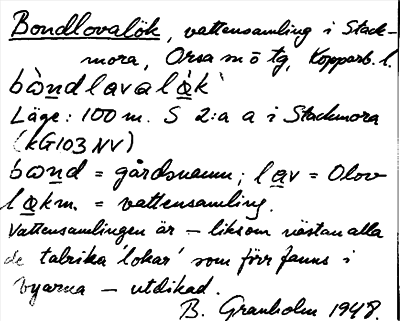 Bondlovalök, vattensamling i Stack-
mora, Orsa m ö tg, Kopparb. l.
bò̱ndlavalò̱k`
Läge: 100 m. S 2:a a i Stackmora
(KG103 NV)
bo̱nd = gårdsnamn; la̱v = Olov
lo̱km. = vattensamling.
Vattensamlingen är – liksom nästan alla
de talrika 'lokar' som förr fanns i
byarna – utdikad.
B. Granholm 1948.